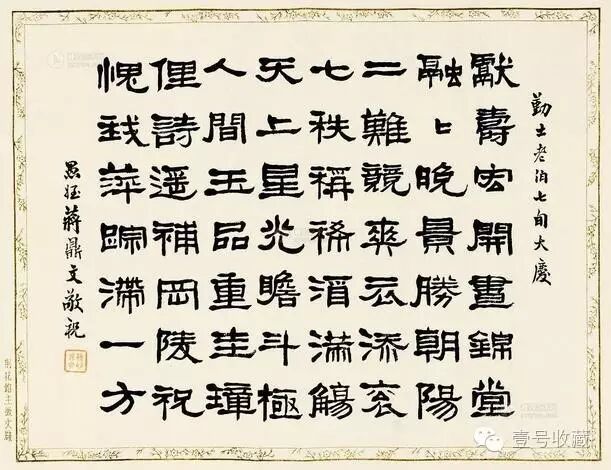 勤士老伯七旬大慶
獻壽宏開晝錦堂
融〻晚景勝朝陽
二難競爽衣添衮
七秩稱稀酒滿觴
天上星光瞻斗極
人間玉品重圭璋
俚詩遥補岡陵祝
愧我萍踪滯一方
愚姪蔣鼎文敬祝
花館主徵文
壹号收藏